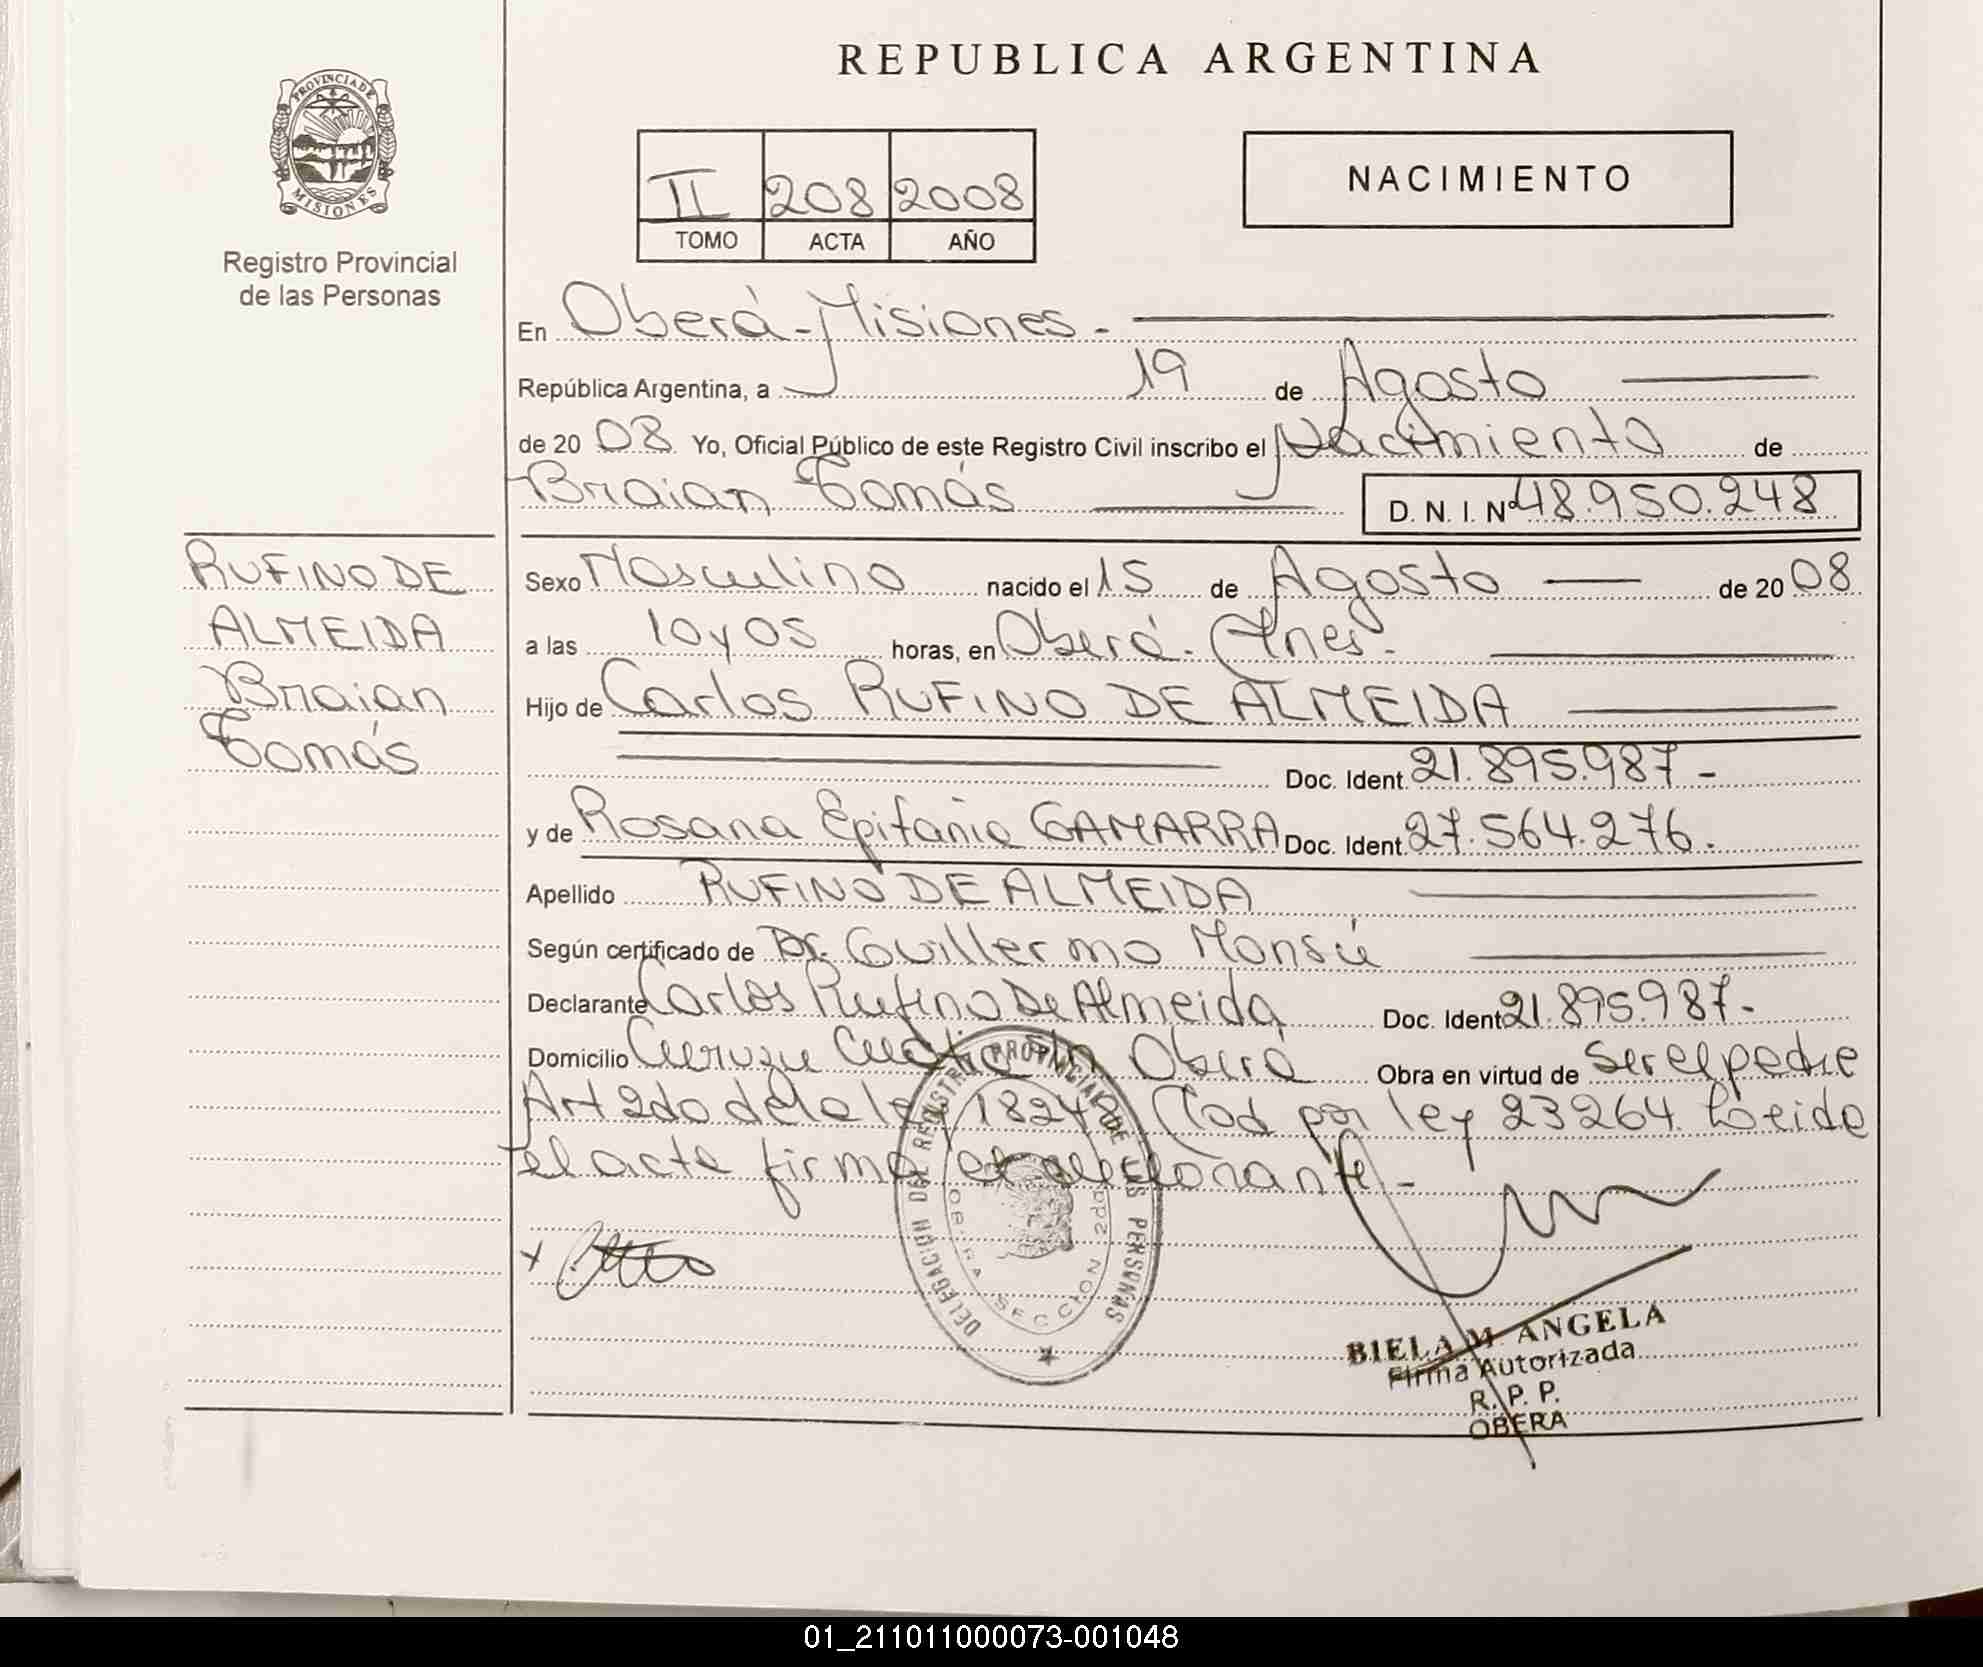 REPUBLICA ARGENTINA
PROVINCIA DE
MISIONES
Registro Provincial
de las Personas
II 208 2008
TOMO ACTA AÑO
NACIMIENTO
En Oberá-Misiones.-
República Argentina, a 19 de Agosto
de 20 08 Yo, Oficial Público de este Registro Civil inscribo el Nacimiento de
Braian Tomás D. N. I. Nº 48.950.248
RUFINO DE
ALMEIDA
Braian
Tomás
Sexo Masculino nacido el 15 de Agosto de 20 08
a las 10 y 05 horas, en Oberá. Mnes.
Hijo de Carlos RUFINO DE ALMEIDA
Doc. Ident. 21.895.987-
y de Rosana Epifania GAMARRA Doc. Ident. 27.564.276.
Apellido RUFINO DE ALMEIDA
Según certificado de Dr. Guillermo Monsú
Declarante Carlos Rufino De Almeida Doc. Ident. 21.895.987-
Domicilio Curuzu Cuatia Oberá Obra en virtud de Ser el padre
Art 2do de la ley 1824 Mod por ley 23264. Leida
el acta firma el declarante.-
DELEGACION DEL REGISTRO PROVINCIAL DE LAS PERSONAS
OBERA SECCION 2da
BIELA M. ANGELA
Firma Autorizada
R. P. P.
OBERA
01_211011000073-001048